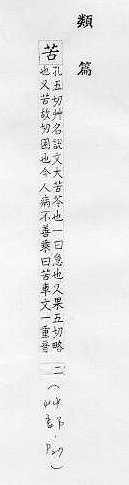 類篇
苦
孔五切艸名說文大苦苓也一曰急也又果五切略
也又苦故切困也今人病不善乘曰苦車文一重音
二
(艸部.